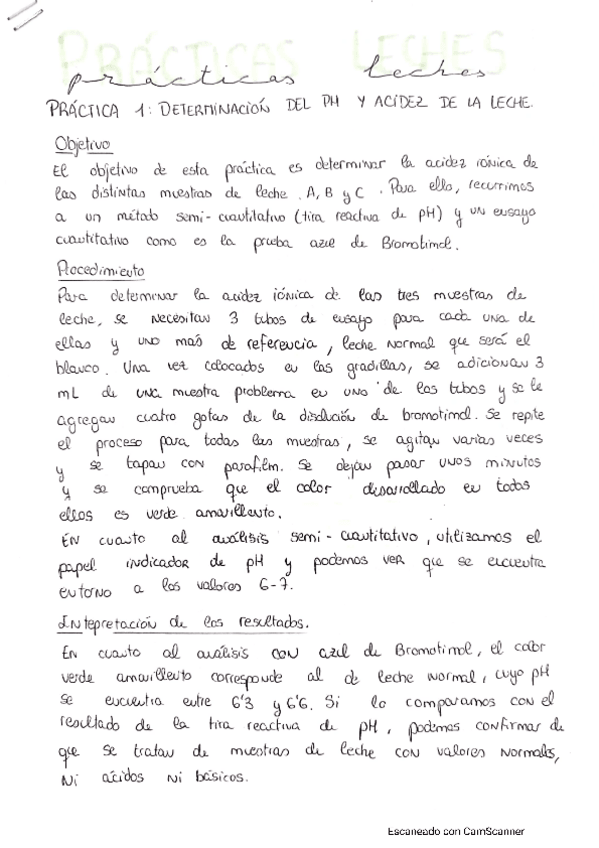 PRÁCTICAS LECHES
prácticas leches
PRÁCTICA 1: DETERMINACIÓN DEL PH Y ACÍDEZ DE LA LECHE.
Objetivo
El objetivo de esta práctica es determinar la acidez iónica de
las distintas muestras de leche. A, B y C. Para ello, recurrimos
a un método semi-cuantitativo (tira reactiva de pH) y un ensayo
cuantitativo como es la prueba azul de Bromotimol.
Procedimiento
Para determinar la acidez iónica de las tres muestras de
leche, se necesitan 3 tubos de ensayo para cada una de
ellas y uno más de referencia, leche normal que será el
blanco. Una vez colocados en las gradillas, se adicionan 3
mL de una muestra problema en uno de los tubos y se le
agregan cuatro gotas de la disolución de bromotimol. Se repite
el proceso para todas las muestras, se agitan varias veces
y se tapan con parafilm. Se dejan pasar unos minutos
y se comprueba que el color desarrollado en todos
ellos es verde amarillento.
EN cuanto al análisis semi-cuantitativo, utilizamos el
papel indicador de pH y podemos ver que se encuentra
entorno a los valores 6-7.
Intepretación de los resultados.
En cuanto al análisis con azul de Bromotimol, el color
verde amarillento corresponde al de leche normal, cuyo pH
se encuentra entre 6'3 y 6'6. Si lo comparamos con el
resultado de la tira reactiva de pH, podemos confirmar de
que se tratan de muestras de leche con valores normales,
Ni ácidos Ni básicos.
Escaneado con CamScanner